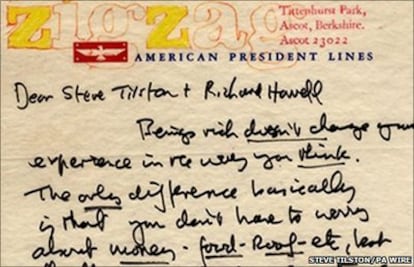 zigzag
Tittenhurst Park,
Ascot, Berkshire.
Ascot 23022
AMERICAN PRESIDENT LINES
Dear Steve Tilston + Richard Howell
Being rich doesn't change your
experience in the way you think.
The only difference basically
is that you don't have to worry
about money - food - roof - etc, but
STEVE TILSTON/PA WIRE